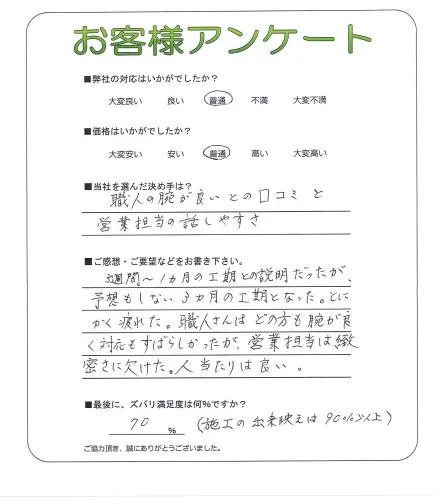 お客様アンケート
■弊社の対応はいかがでしたか?
大変良い 良い 普通 不満 大変不満
■価格はいかがでしたか?
大変安い 安い 普通 高い 大変高い
■当社を選んだ決め手は?
職人の腕が良いとの口コミと
営業担当の話しやすさ
■ご感想・ご要望などをお書き下さい。
3週間〜1カ月の工期との説明だったが、
予想もしない3カ月の工期となった。とに
かく疲れた。職人さんはどの方も腕が良
く対応もすばらしかったが、営業担当は緻
密さに欠けた。人当たりは良い。
■最後に、ズバリ満足度は何%ですか?
70 % (施工の出来映えは90%以上)
ご協力頂き、誠にありがとうございました。